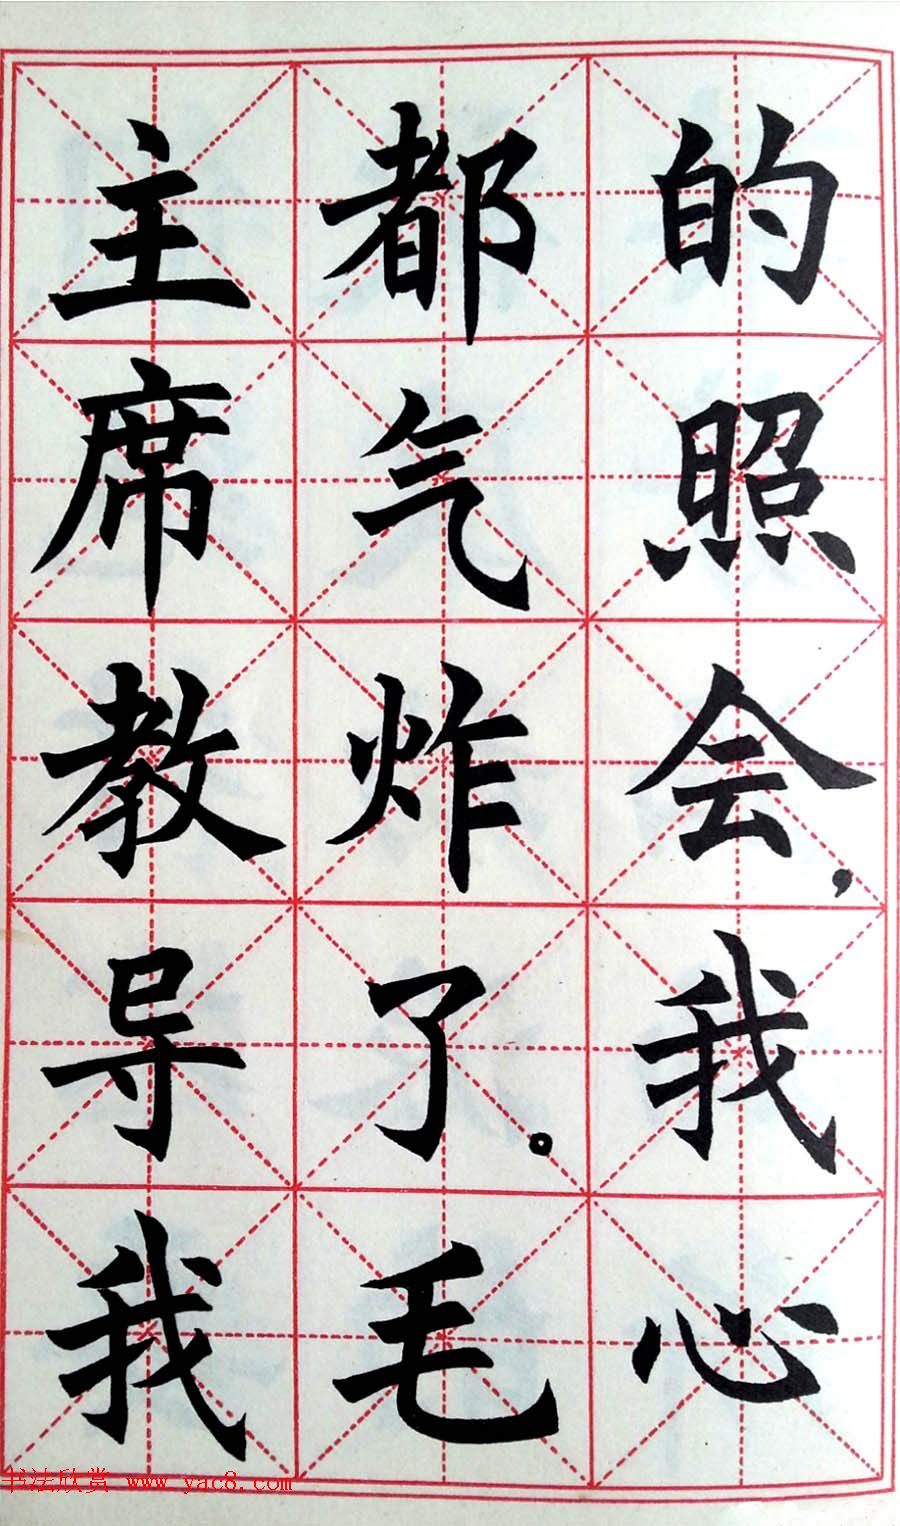 的照会，我心
都气炸了。毛
主席教导我
书法欣赏 www.yac8.com